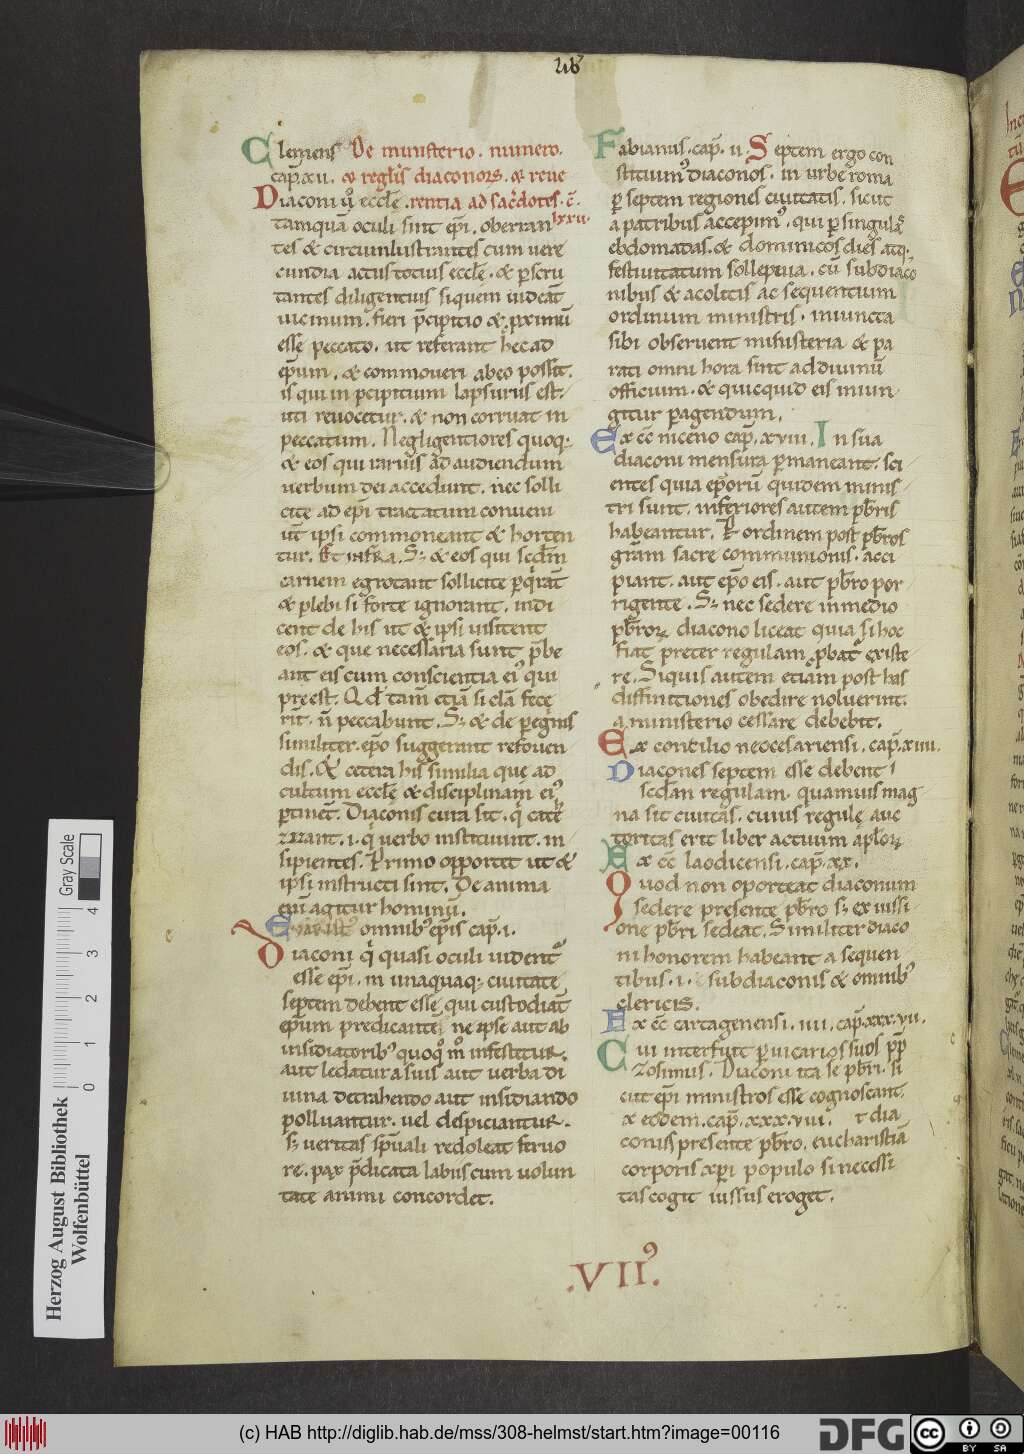 Lib
Clemens De ministerio. numero.
cap̄. xii. & reglis diaconor̄. & reue
Diaconi ū eccłę. rentia ad sac̄dotes. c̄.
lxxii.
tamquā oculi sint ep̄i. oberran
tes & circumlustrantes cum uere
cundia actus totius eccłę. & p̄scru
tantes diligentius si quem uideāt
uicinum. fieri p̄cipitio & p̄ximū
esse peccato. ut referant hęc ad
ep̄um. & commoueri ab eo possit.
is qui in p̄cipitium lapsurus est.
uti reuocetur. & non corruat in
peccatum. Negligentiores quoq;
& eos qui rarius ad audiendum
uerbum dei accedunt. nec solli
cite ad ep̄i tractatum conueni
ūt ipsi commoneant & horten
tur. Et infra. S; & eos qui scd̄m
carnem egrotant sollicite p̄q̄rāt
& plebi si forte ignorant. indi
cent de his ut & ipsi uisitent
eos. & que necessaria sunt p̄be
ant eis cum conscientia ei᾽ qui
preest. Qd̄ tam̄ etiā si clā fece
rīt. n̄ peccabunt. S; & de p̄egnis
similiter. ep̄o suggerant refouen
dis. & cetera his similia que ad
cultum eccłę & disciplinam ei᾽
p̄tinēt. Diaconis cura sit. q̄ cate
zizant. i. q̄ uerbo instituunt. in
sipientes. Primo opportet ut &
ipsi instructi sint. De anima
eni᾽ agitur hominū.
Euaristus omnib; ep̄is cap̄. i.
Diaconi q̄ quasi oculi uident᾽
esse ep̄i. in unaquaq; ciuitate
septem debent esse qui custodiāt
ep̄um predicantē ne ipse aut ab
insidiatorib; quoq̄ m̊ infestetur.
aut ledatur a suis aut uerba di
uina detrahendo aut insidiando
polluantur. uel despiciantur.
s; ueritas sp̄uali redoleat feruo
re. pax p̄dicata labiis cum uolun
tate animi concordet.
Fabianus. cap̄. ii. Septem ergo con
stituim᾽ diaconos. in urbe roma
p̄ septem regiones ciuitatis. sicut
a patribus accepim᾽. qui p̄ singulas
ebdomadas. & dominicos dies. atq;
festiuitatum sollepnia. cū subdiaco
nibus & acolitis ac sequentium
ordinum ministris. iniuncta
sibi obseruent misteria & pa
rati omni hora sint ad diuinū
officium. & quicquid eis iniun
gitur p̄agendum.
Ex c̄c niceno cap̄. xviii. In sua
diaconi mensura p̄maneant. sci
entes quia ep̄orū quidem minis
tri sunt. inferiores autem p̄b̄ris
habeantur. P̄ ordinem post p̄b̄ros
grām sacre communionis. acci
piant. aut ep̄o eis. aut p̄b̄ro por
rigente. S; nec sedere in medio
p̄b̄ror̄ diacono liceat quia si hoc
fiat preter regulam p̄bat᾽ existe
re. Si quis autem etiam post has
diffinitiones obedire noluerint.
a ministerio cessare debebit.
Ex concilio neocesariensi. cap̄. xiiii.
Diacones septem esse debent
scd̄m regulam. quamuis mag
na sit ciuitas. cuius regulę auc
toritas erit liber actuum ap̄lor̄
Ex c̄c laodicensi. cap̄. xx.
Quod non oporteat diaconum
sedere presente p̄b̄ro s; ex iussi
one p̄b̄ri sedeat. Similiter diaco
ni honorem habeant a sequen
tibus. i. subdiaconis & omnib;
clericis.
Ex c̄c cartagenensi. iiii. cap̄. xxx. vii.
Cui interfuit p̄ uicarios suos p̄p̄
zosimus. Diaconi ita se p̄b̄ri. si
cut ep̄i ministros esse cognoscant.
Ex eodem. cap̄. xxx. viii. Ut dia
conus presente p̄b̄ro. eucharistiā
corporis xp̄i populo si necessi
tas cogit iussus eroget.
.VII᾽.
Herzog August Bibliothek
Wolfenbüttel
Gray Scale
0 1 2 3 4
(c) HAB http://diglib.hab.de/mss/308-helmst/start.htm?image=00116
DFG
cc
BY SA